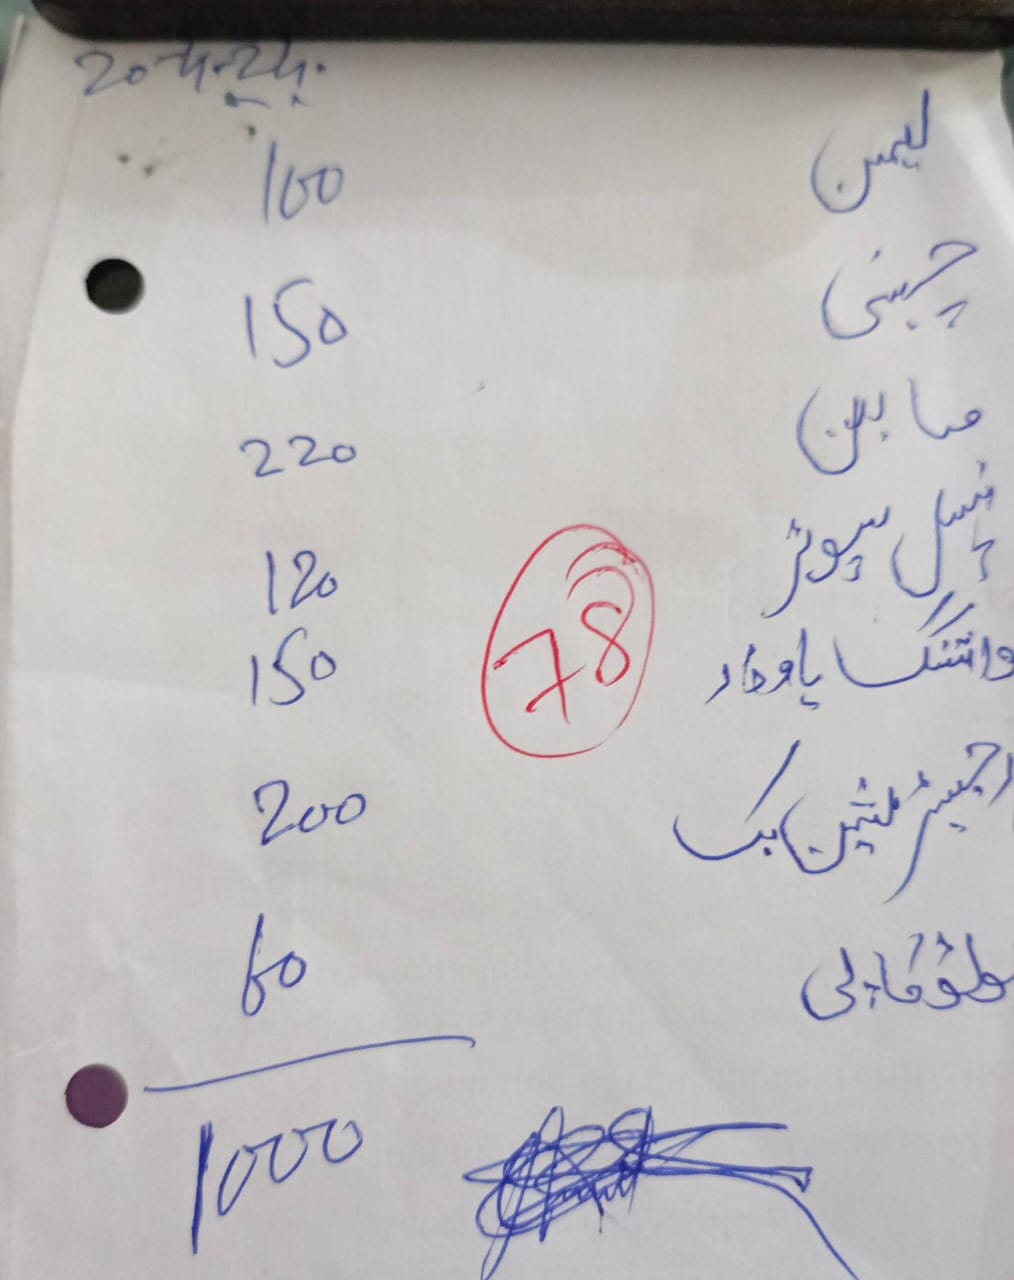 20-4-24.
لیمن 100
چینی 150
صابن 220
پنسل سپونژ 120
واشنگ پاوڈر 150
78
رجسٹریشن بک 200
فوٹو کاپی 60
1000